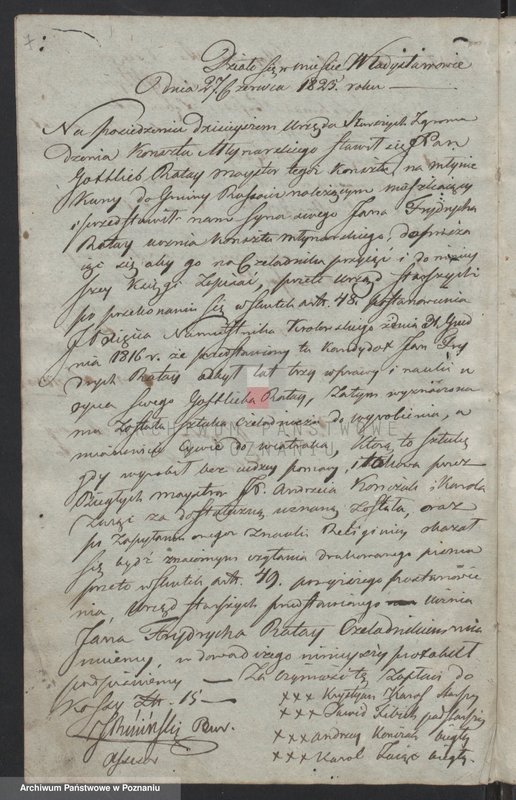 Działo się w mieście Władysławowie
Dnia 27 Czerwca 1825 roku
Na posiedzeniu dzisiejszem Urzędu Starszych Zgroma
dzenia Konsztu Młynarskiego stawił się JPan
Gottlieb Ratay majster tegoż Konsztu, na młynie
do Gminy należącym mieszkający
i przedstawił nam syna swego Jana Frydrycha
Ratay ucznia Konsztu młynarskiego, doprasza
iąc się aby go na Czeladnika przyiąć i do
szey Księgi zapisać, przeto Urząd Starszych
po przekonaniu się w skutek artk. 48. postanowienia
JO Xięcia Namiestnika Krolewskiego z dnia 31 Grud
nia 1816 r. że przedstawiony tu Kandydat Jan Fry
drych Ratay odbył lat trzy w sprawy i nauki u
oyca swego Gottlieba Ratay, Zatym wyznaczona
mu została sztuka Czeladnicza do wyrobienia, a
mianowicie Cywie do wiatraka, którą to sztukę
gdy wyrobił bez cudzey pomocy, i takowa przez
Biegłych majstrow Andrzeia i Karola
za dostateczną uznaną została, oraz
po Zapytaniu onegoż z nauki Religiiney okazał
się bydź znaiomym czytania drukowanego pisma
przeto w skutek artk. 49. powyższego postanowie
nia, Urząd starszych przedstawionego ucznia
Jana Frydrycha Ratay Czeladnikiem mia
nuiemy, w dowod czego ninieyszy protokuł
podpisuiemy — Za czynności tę zapłaci do
Kassy Złt. 15 —
xxx Krystyan Karol starszy
xxx Dawid podstarszy
Bur.
xxx Andrzey biegły
Assesor
xxx Karol biegły.
ARCHIWUM PAŃSTWOWE
W POZNANIU
Archiwum Państwowe w Poznaniu